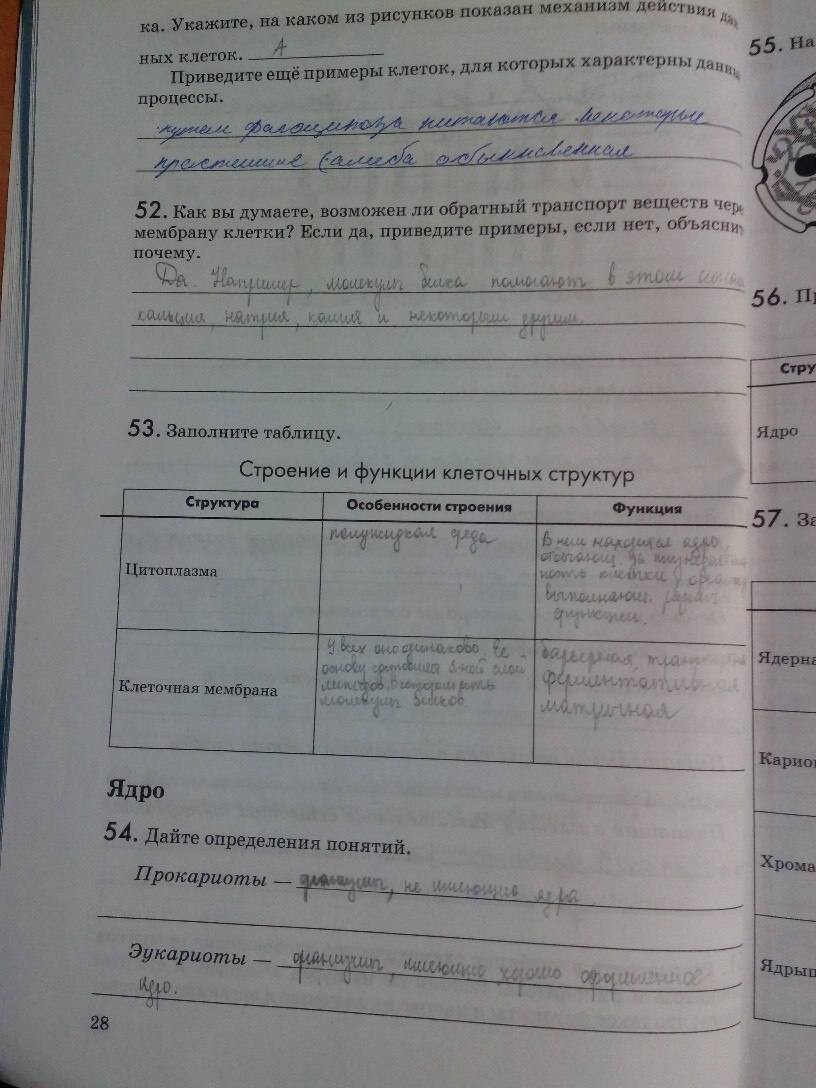 ка. Укажите, на каком из рисунков показан механизм действия дан
ных клеток. А
Приведите ещё примеры клеток, для которых характерны данны
процессы.
путем фагоцитоза питаются некоторые
простейшие (амеба обыкновенная
52. Как вы думаете, возможен ли обратный транспорт веществ чере
мембрану клетки? Если да, приведите примеры, если нет, объясни
почему.
Да. Например, молекулы белка помогают в этом ионам
кальция, натрия, калия и некоторым другим.
53. Заполните таблицу.
Строение и функции клеточных структур
Структура Особенности строения Функция
Цитоплазма
полужидкая среда
В ней находится ядро,
отвечающ. за жизнедеятель
ность клетки и
выполняющ.
функции.
Клеточная мембрана
У всех она одинакова. Ее
основу слой
липидов, в котором есть
молекулы белков
барьерная,
ферментативная,
матричная
Ядро
54. Дайте определения понятий.
Прокариоты — организмы, не имеющие ядра
Эукариоты — организмы, имеющие хорошо оформленное
ядро.
28
55. На
56. П
Стру
Ядро
57. За
Ядерна
Карио
Хрома
Ядрыш